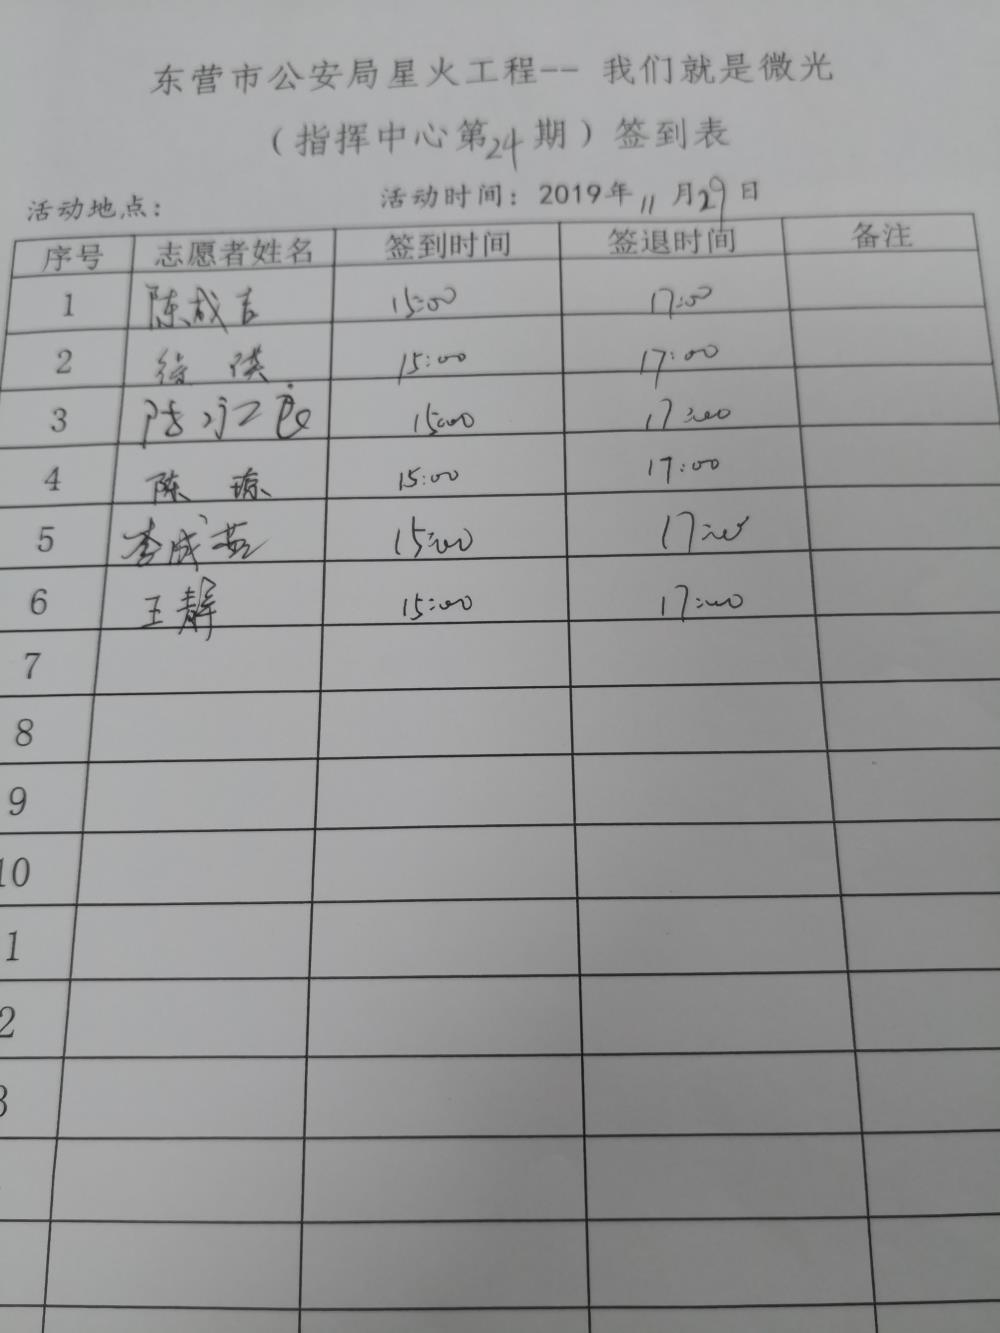 东营市公安局星火工程-- 我们就是微光
（指挥中心第24期）签到表
活动地点： 活动时间：2019年11月29日
序号 志愿者姓名 签到时间 签退时间 备注
1 陈成吉 15:00 17:00
2 徐 15:00 17:00
3 陈江 15:00 17:00
4 陈琼 15:00 17:00
5 李成燕 15:00 17:00
6 王静 15:00 17:00
7
8
9
10
1
2
3